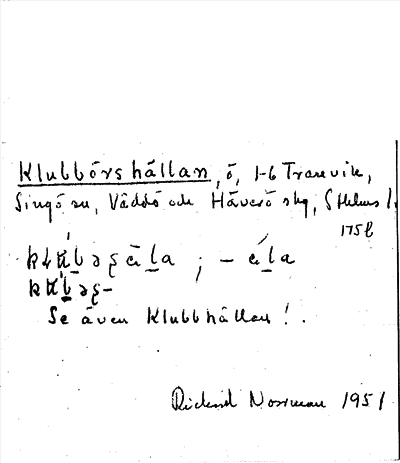 Klubbörshällan, ö, 1-6 Tranvik,
Singö sn, Väddö och Häverö skg, Sthlms l.
175 b
; –
Se även Klubbhällan!.
Rickard Norrman 1951